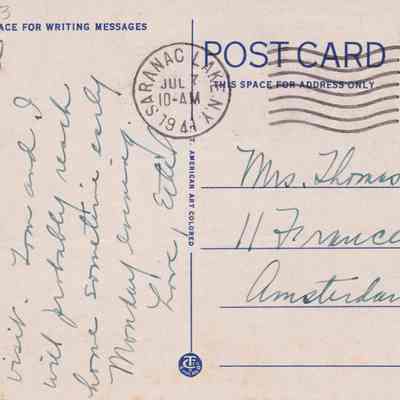 3
ACE FOR WRITING MESSAGES
POST CARD
THIS SPACE FOR ADDRESS ONLY
SARANAC LAKE, N.Y.
JUL
10-AM
194
visit. Tom and I
will probably reach
home sometime early
Monday evening.
Love,
T. AMERICAN ART COLORED
Mrs. Thomas
11 France
Amsterda